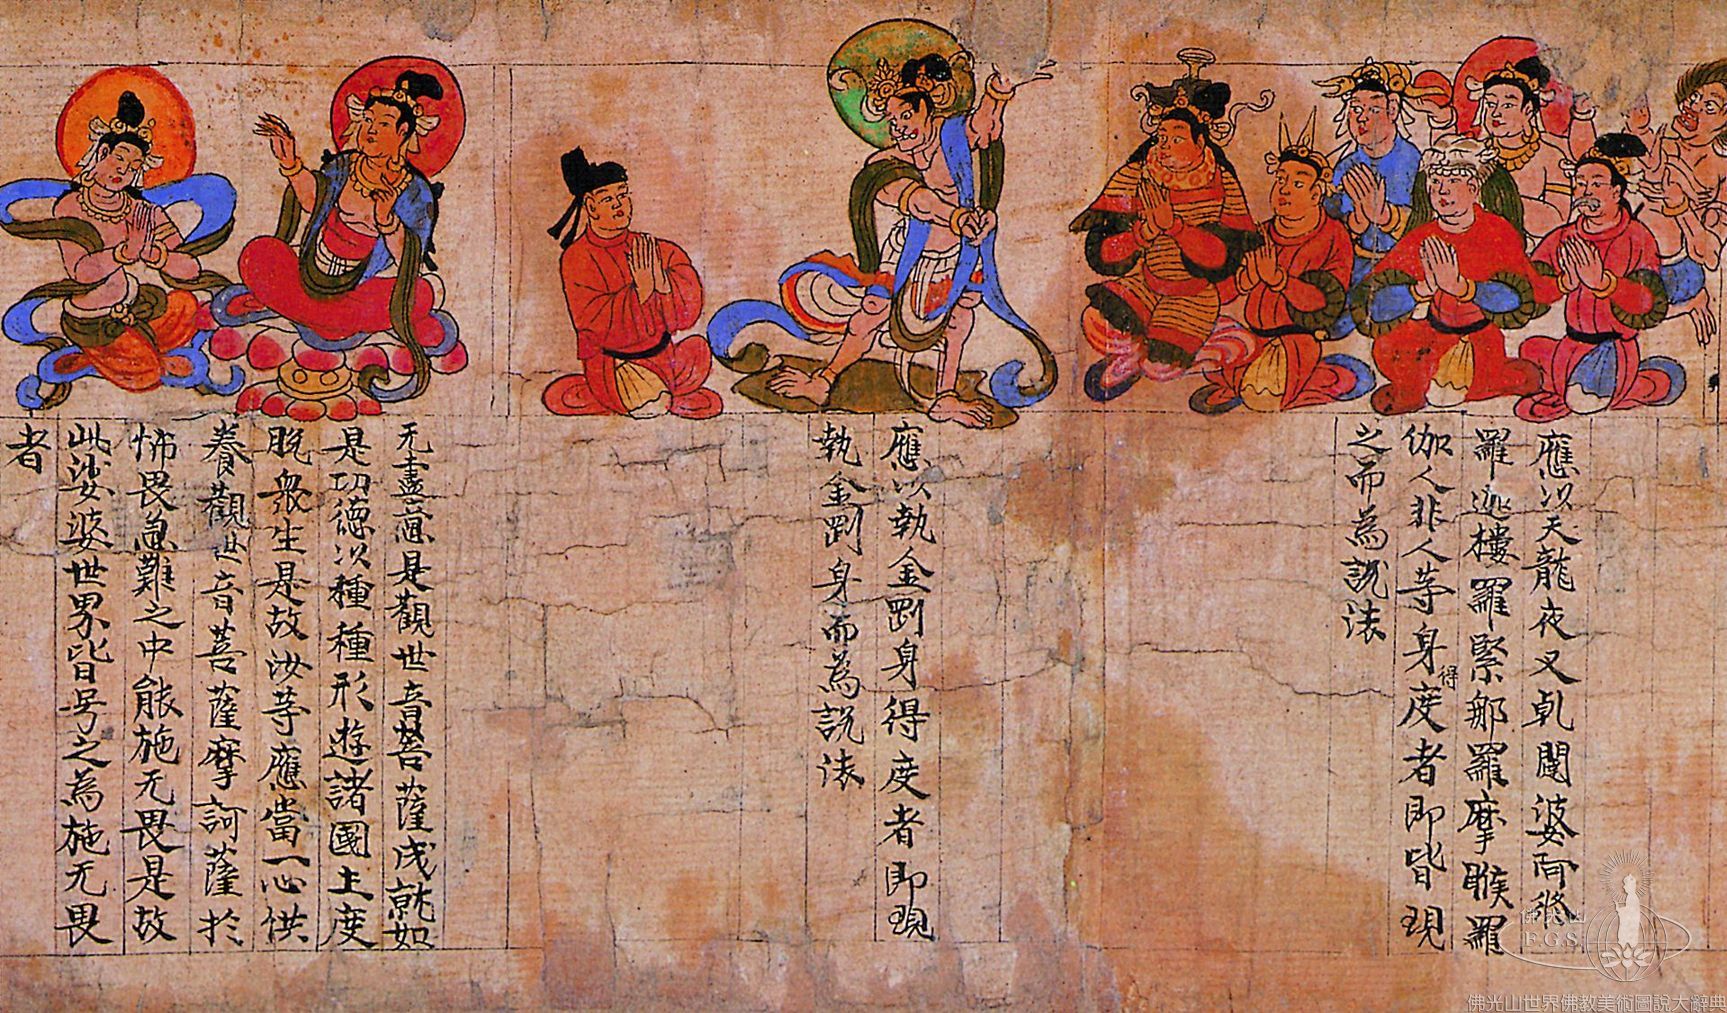 應以天龍夜叉乹闥婆阿修
羅迦樓羅緊那羅摩睺羅
伽人非人等身得度者即皆現
之而為說法
應以執金剛身得度者即現
執金剛身而為說法
无盡意是觀世音菩薩成就如
是功德以種種形遊諸國土度
脫衆生是故汝等應當一心供
養觀世音菩薩摩訶薩於
怖畏急難之中能施无畏是故
此娑婆世界皆号之為施无畏
者
佛光山
F.G.S.
佛光山世界佛教美術圖說大辭典